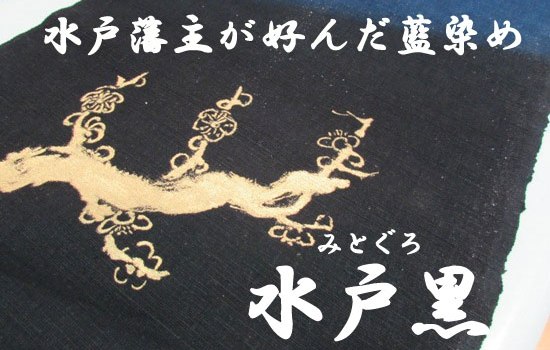 水戸藩主が好んだ藍染め
みとぐろ
水戸黒